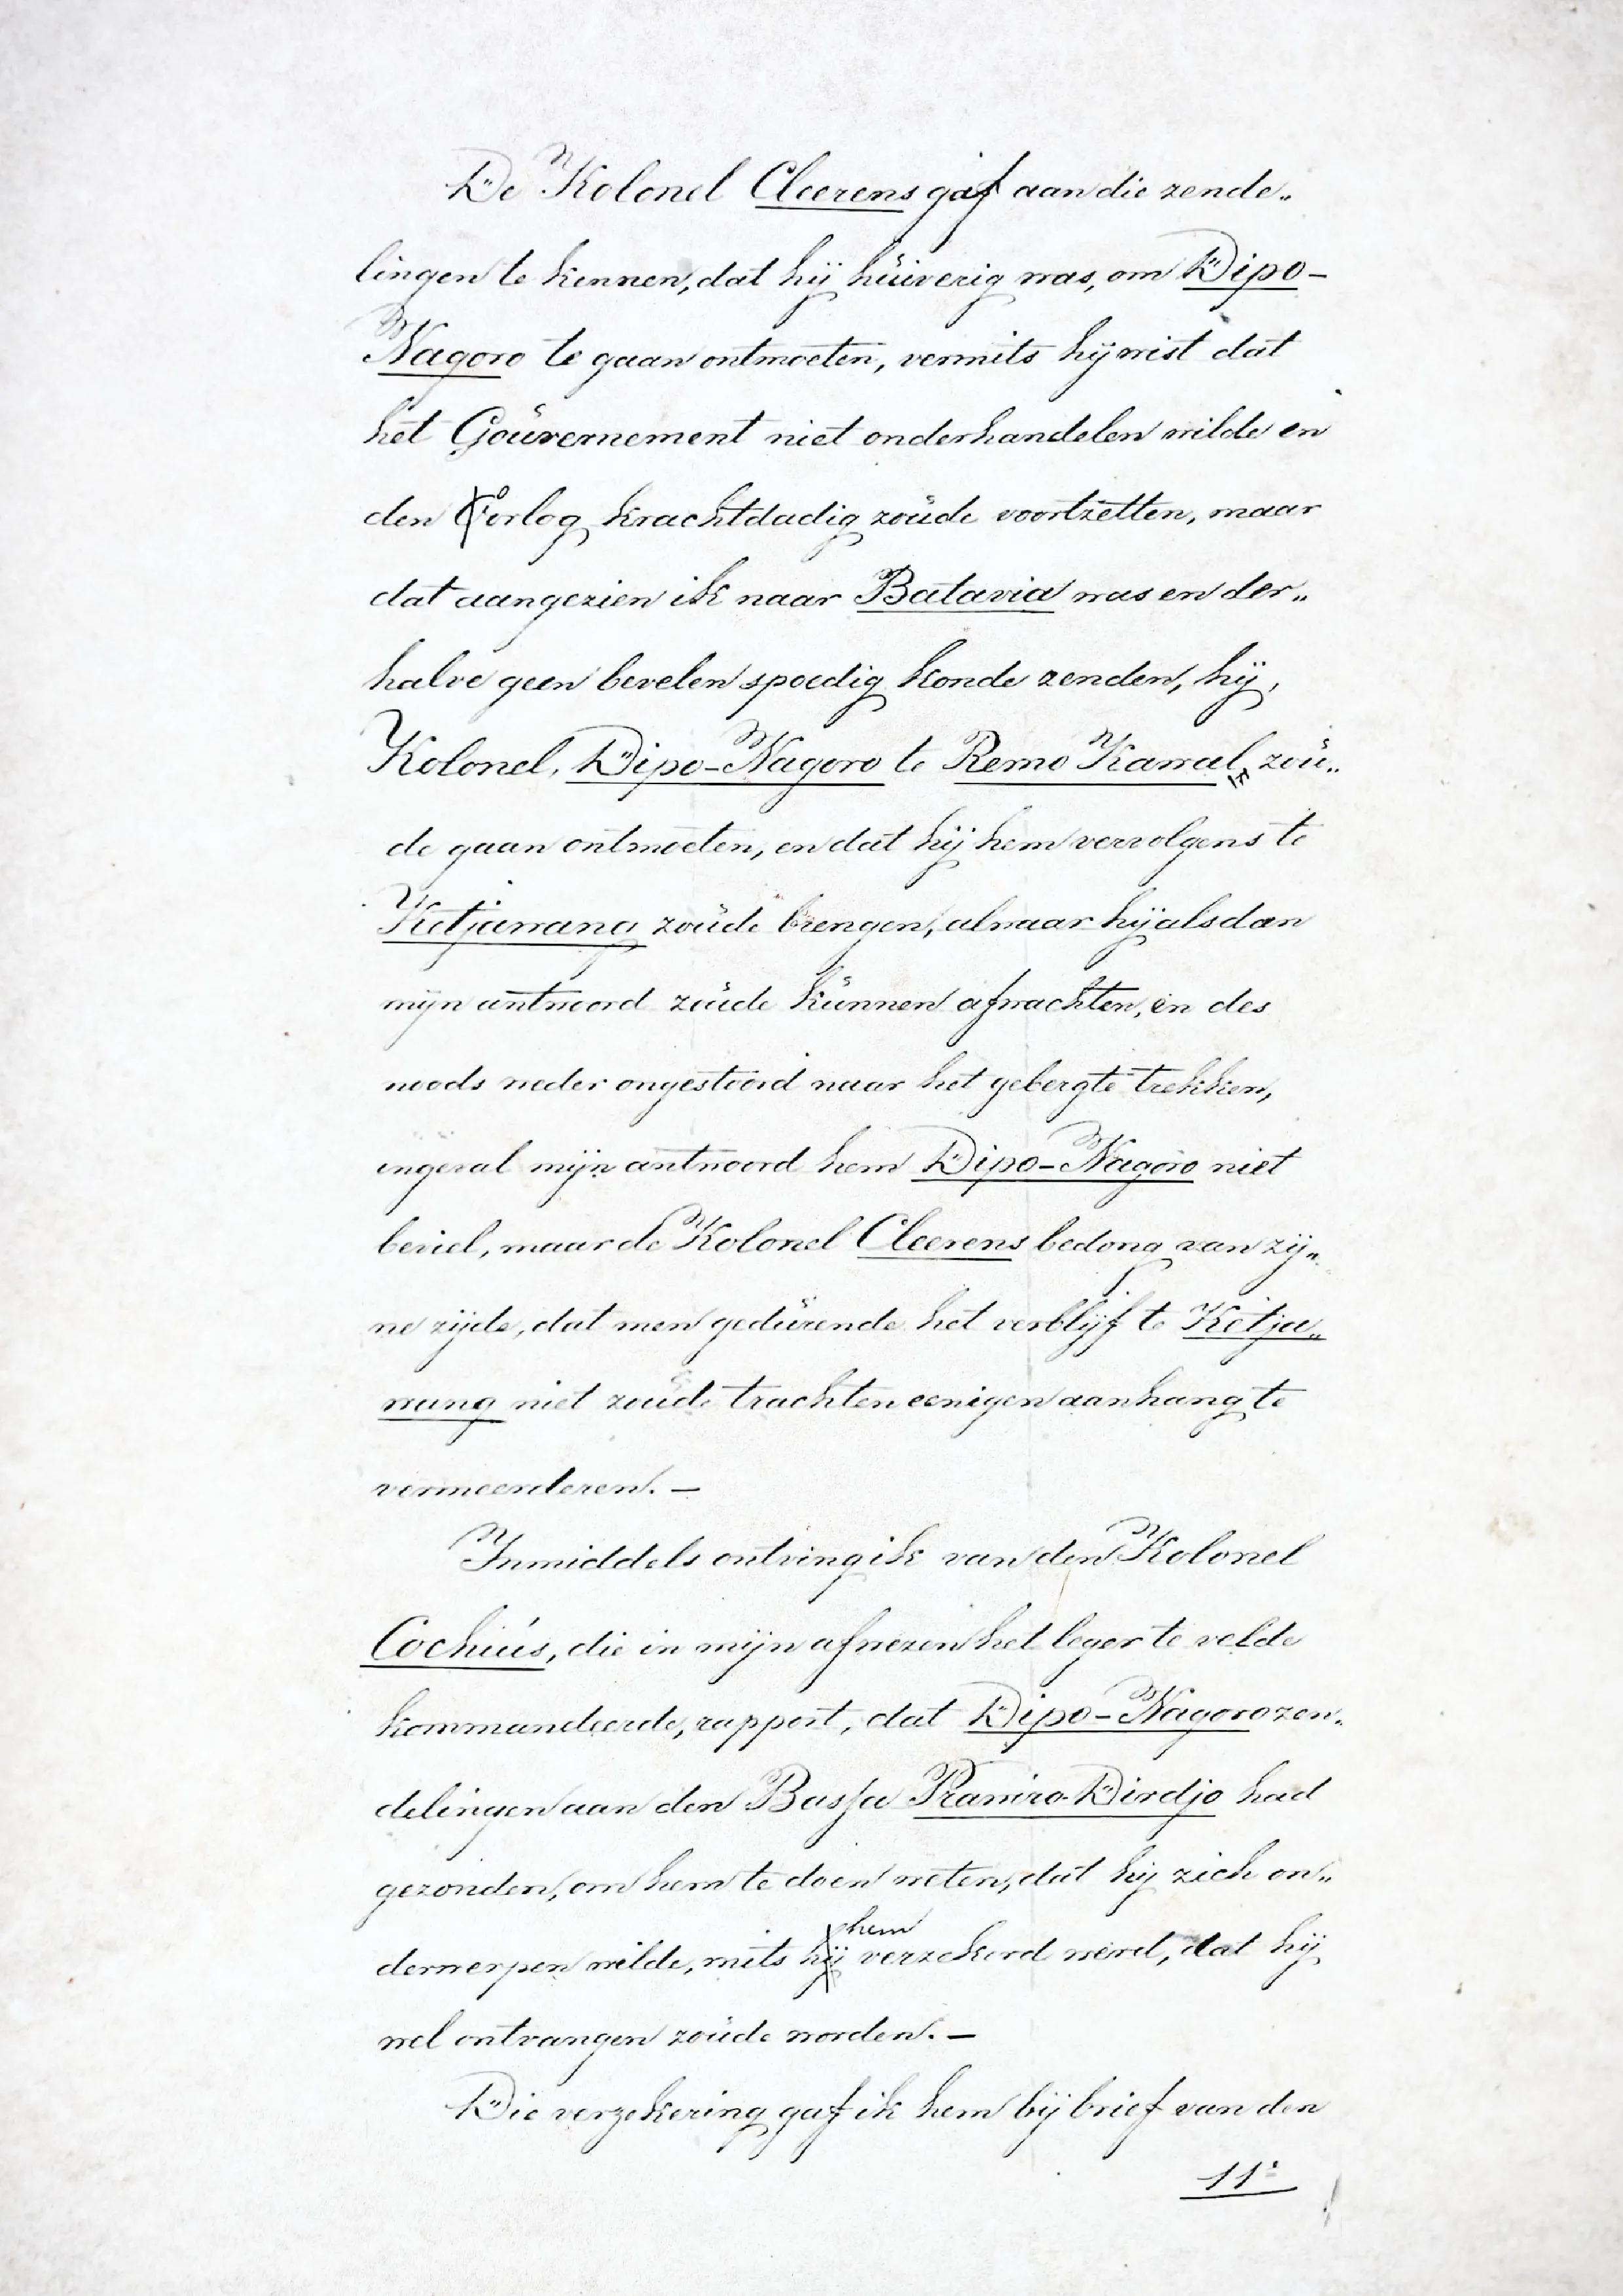 De Kolonel Cleerens gaf aan die zende„
lingen te kennen, dat hij huiverig was, om Dipo-
Nagoro te gaan ontmoeten, vermits hij wist dat
het Gouvernement niet onderhandelen wilde en
den Oorlog krachtdadig zoude voortzetten, maar
dat aangezien ik naar Batavia was en der„
halve geen bevelen spoedig konde zenden, hij,
Kolonel, Dipo-Nagoro te Remo Kamal zou„
de gaan ontmoeten, en dat hij hem vervolgens te
Ketjawang zoude brengen, alwaar hij alsdan
mijn antwoord zoude kunnen afwachten, en des
noods weder ongestoord naar het gebergte trekken,
ingeval mijn antwoord hem Dipo-Nagoro niet
beviel, maar de Kolonel Cleerens bedong van zij„
ne zijde, dat men gedurende het verblijf te Ketja„
wang niet zoude trachten eenigen aanhang te
vermeerderen. —
Inmiddels ontving ik van den Kolonel
Cochius, die in mijn afwezen het leger te velde
kommandeerde, rapport, dat Dipo-Nagoro zen„
delingen aan den Bassa Prawiro-Dirdjo had
gezonden, om hem te doen weten, dat hij zich on„
derwerpen wilde, mits hij hem verzekerd werd, dat hij
wel ontvangen zoude worden. —
Die verzekering gaf ik hem bij brief van den
11e